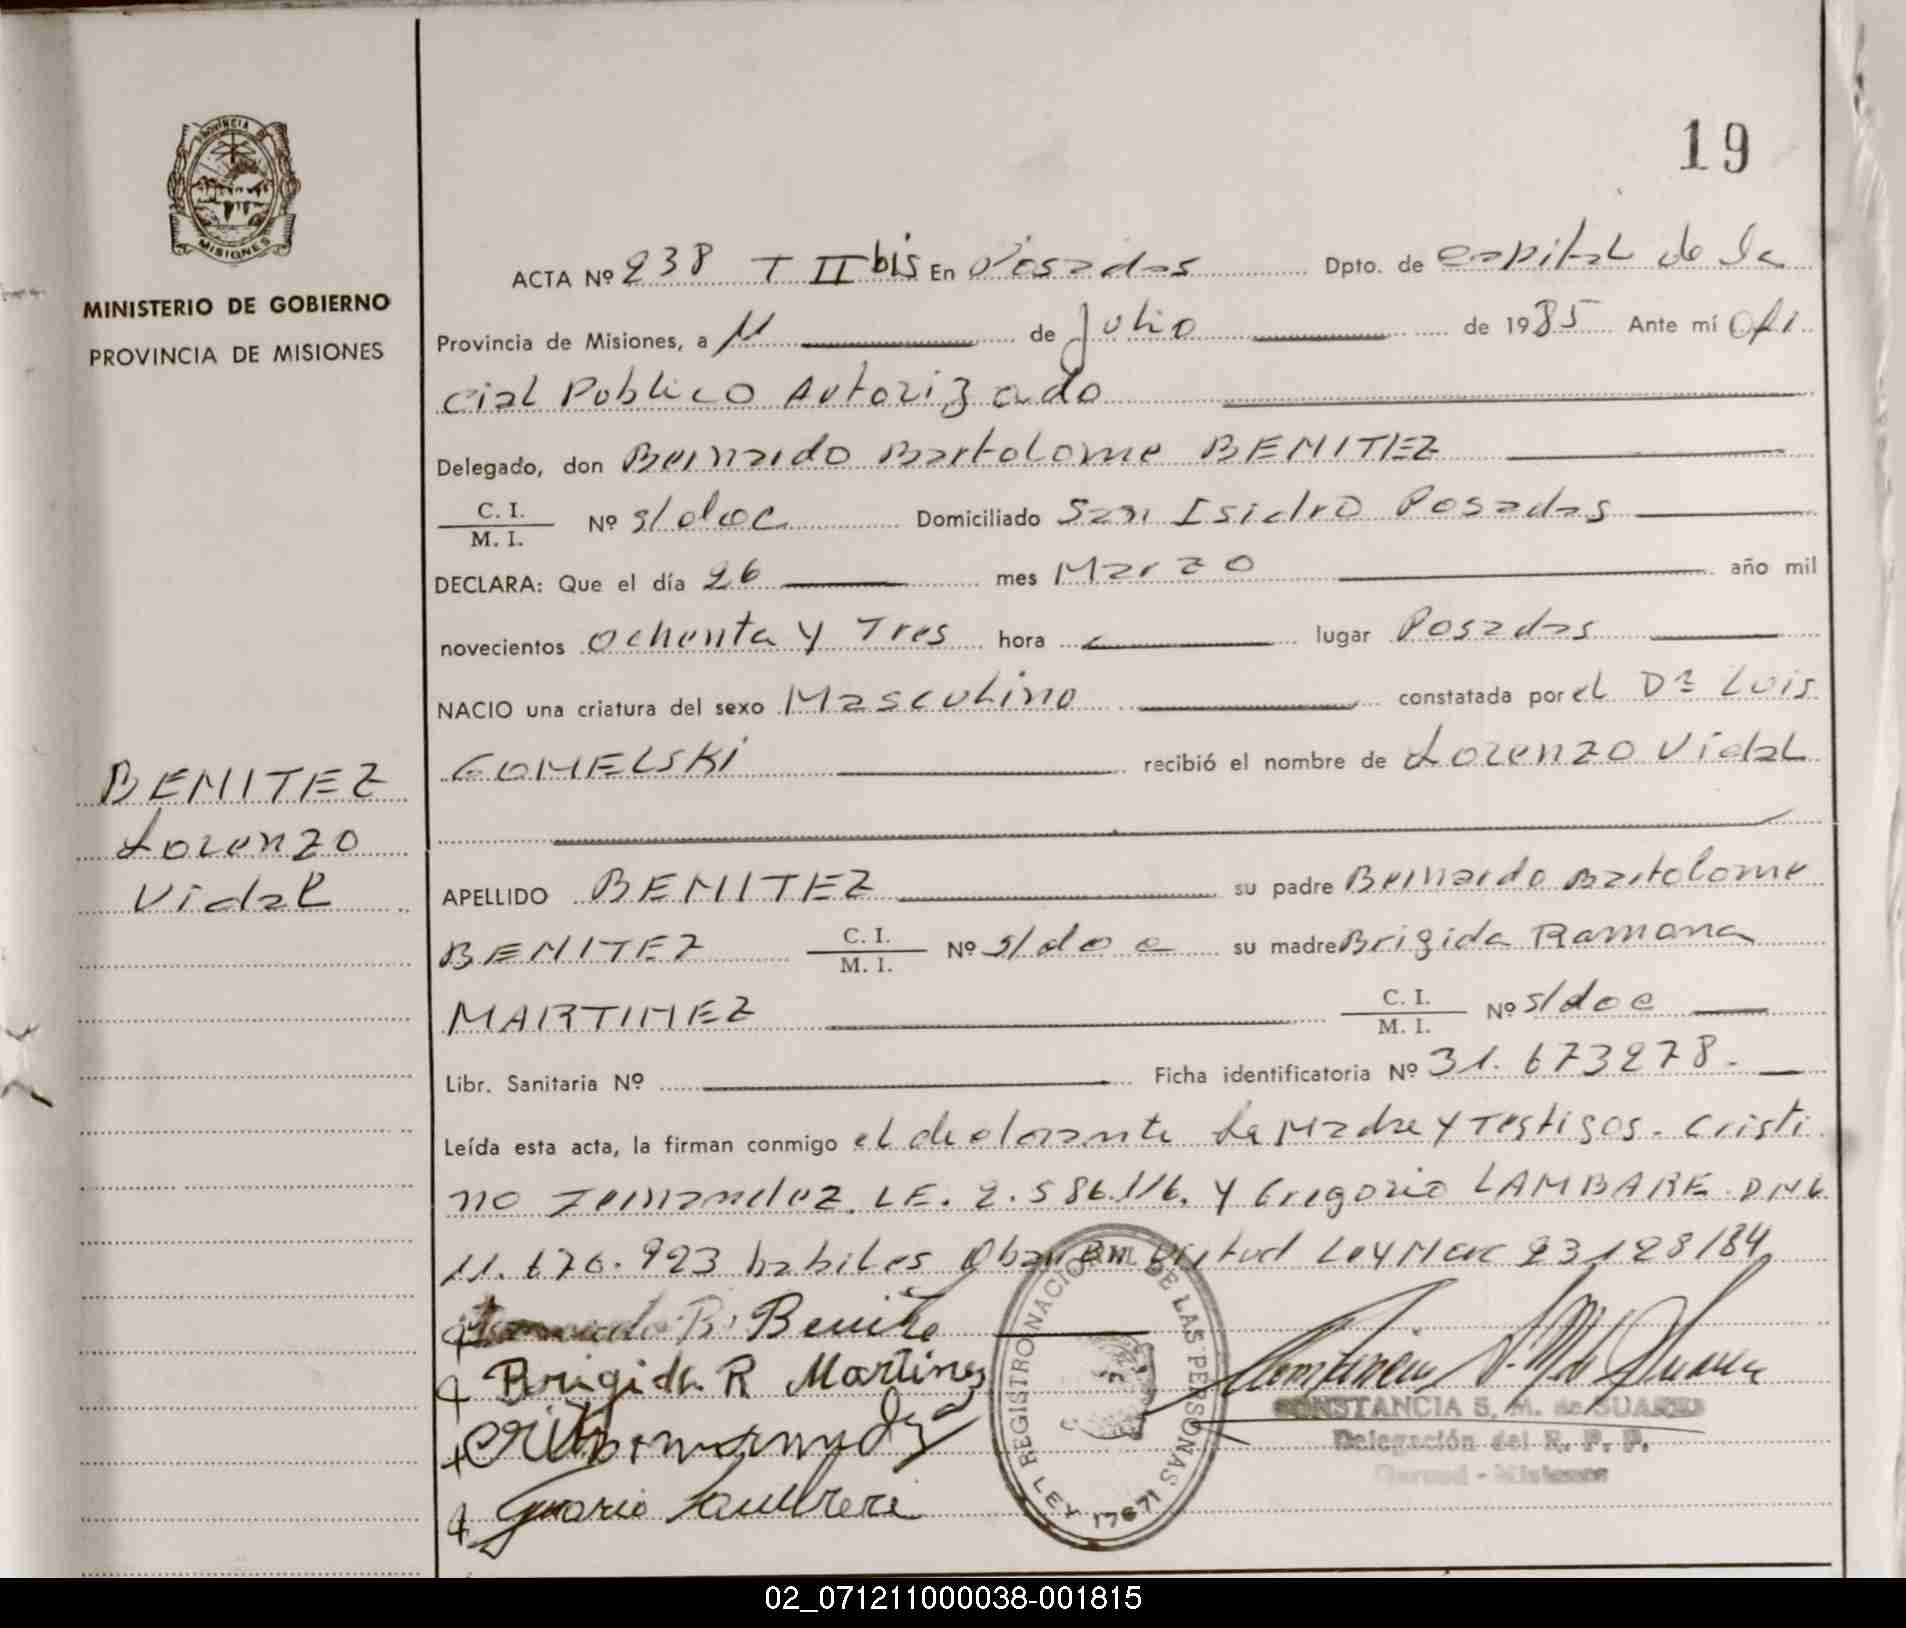 PROVINCIA DE
MISIONES
MINISTERIO DE GOBIERNO
PROVINCIA DE MISIONES
BENITEZ
Lorenzo
Vidal
19
ACTA Nº 238 T II bis En Posadas Dpto. de capital de la
Provincia de Misiones, a 11 de Julio de 1985 Ante mí Ofi
cial Publico Autorizado
Delegado, don Bernardo Bartolome BENITEZ
C. I.
M. I.
Nº s/doc Domiciliado San Isidro Posadas
DECLARA: Que el día 26 mes Marzo año mil
novecientos ochenta y Tres hora lugar Posadas
NACIO una criatura del sexo Masculino constatada por el Dr Luis
GOMELSKI recibió el nombre de Lorenzo Vidal
APELLIDO BENITEZ su padre Bernardo Bartolome
BENITEZ C. I. M. I. Nº s/doc su madre Brigida Ramona
MARTINEZ C. I. M. I. Nº s/doc
Libr. Sanitaria Nº Ficha identificatoria Nº 31.673278.
Leída esta acta, la firman conmigo el declarante La Madre y Testigos. Cristi
no Fernandez. LE. 2.586.116. y Gregorio LAMBARE DNI
11.676.923 habiles Obran en Virtud Ley Nac 23128/84
B. Benite
Brigida R Martines
REGISTRO NACIONAL DE LAS PERSONAS
LEY 17671
CONSTANCIA S. M. de SUAREZ
Delegación del R. P. P.
Garupá - Misiones
02_071211000038-001815